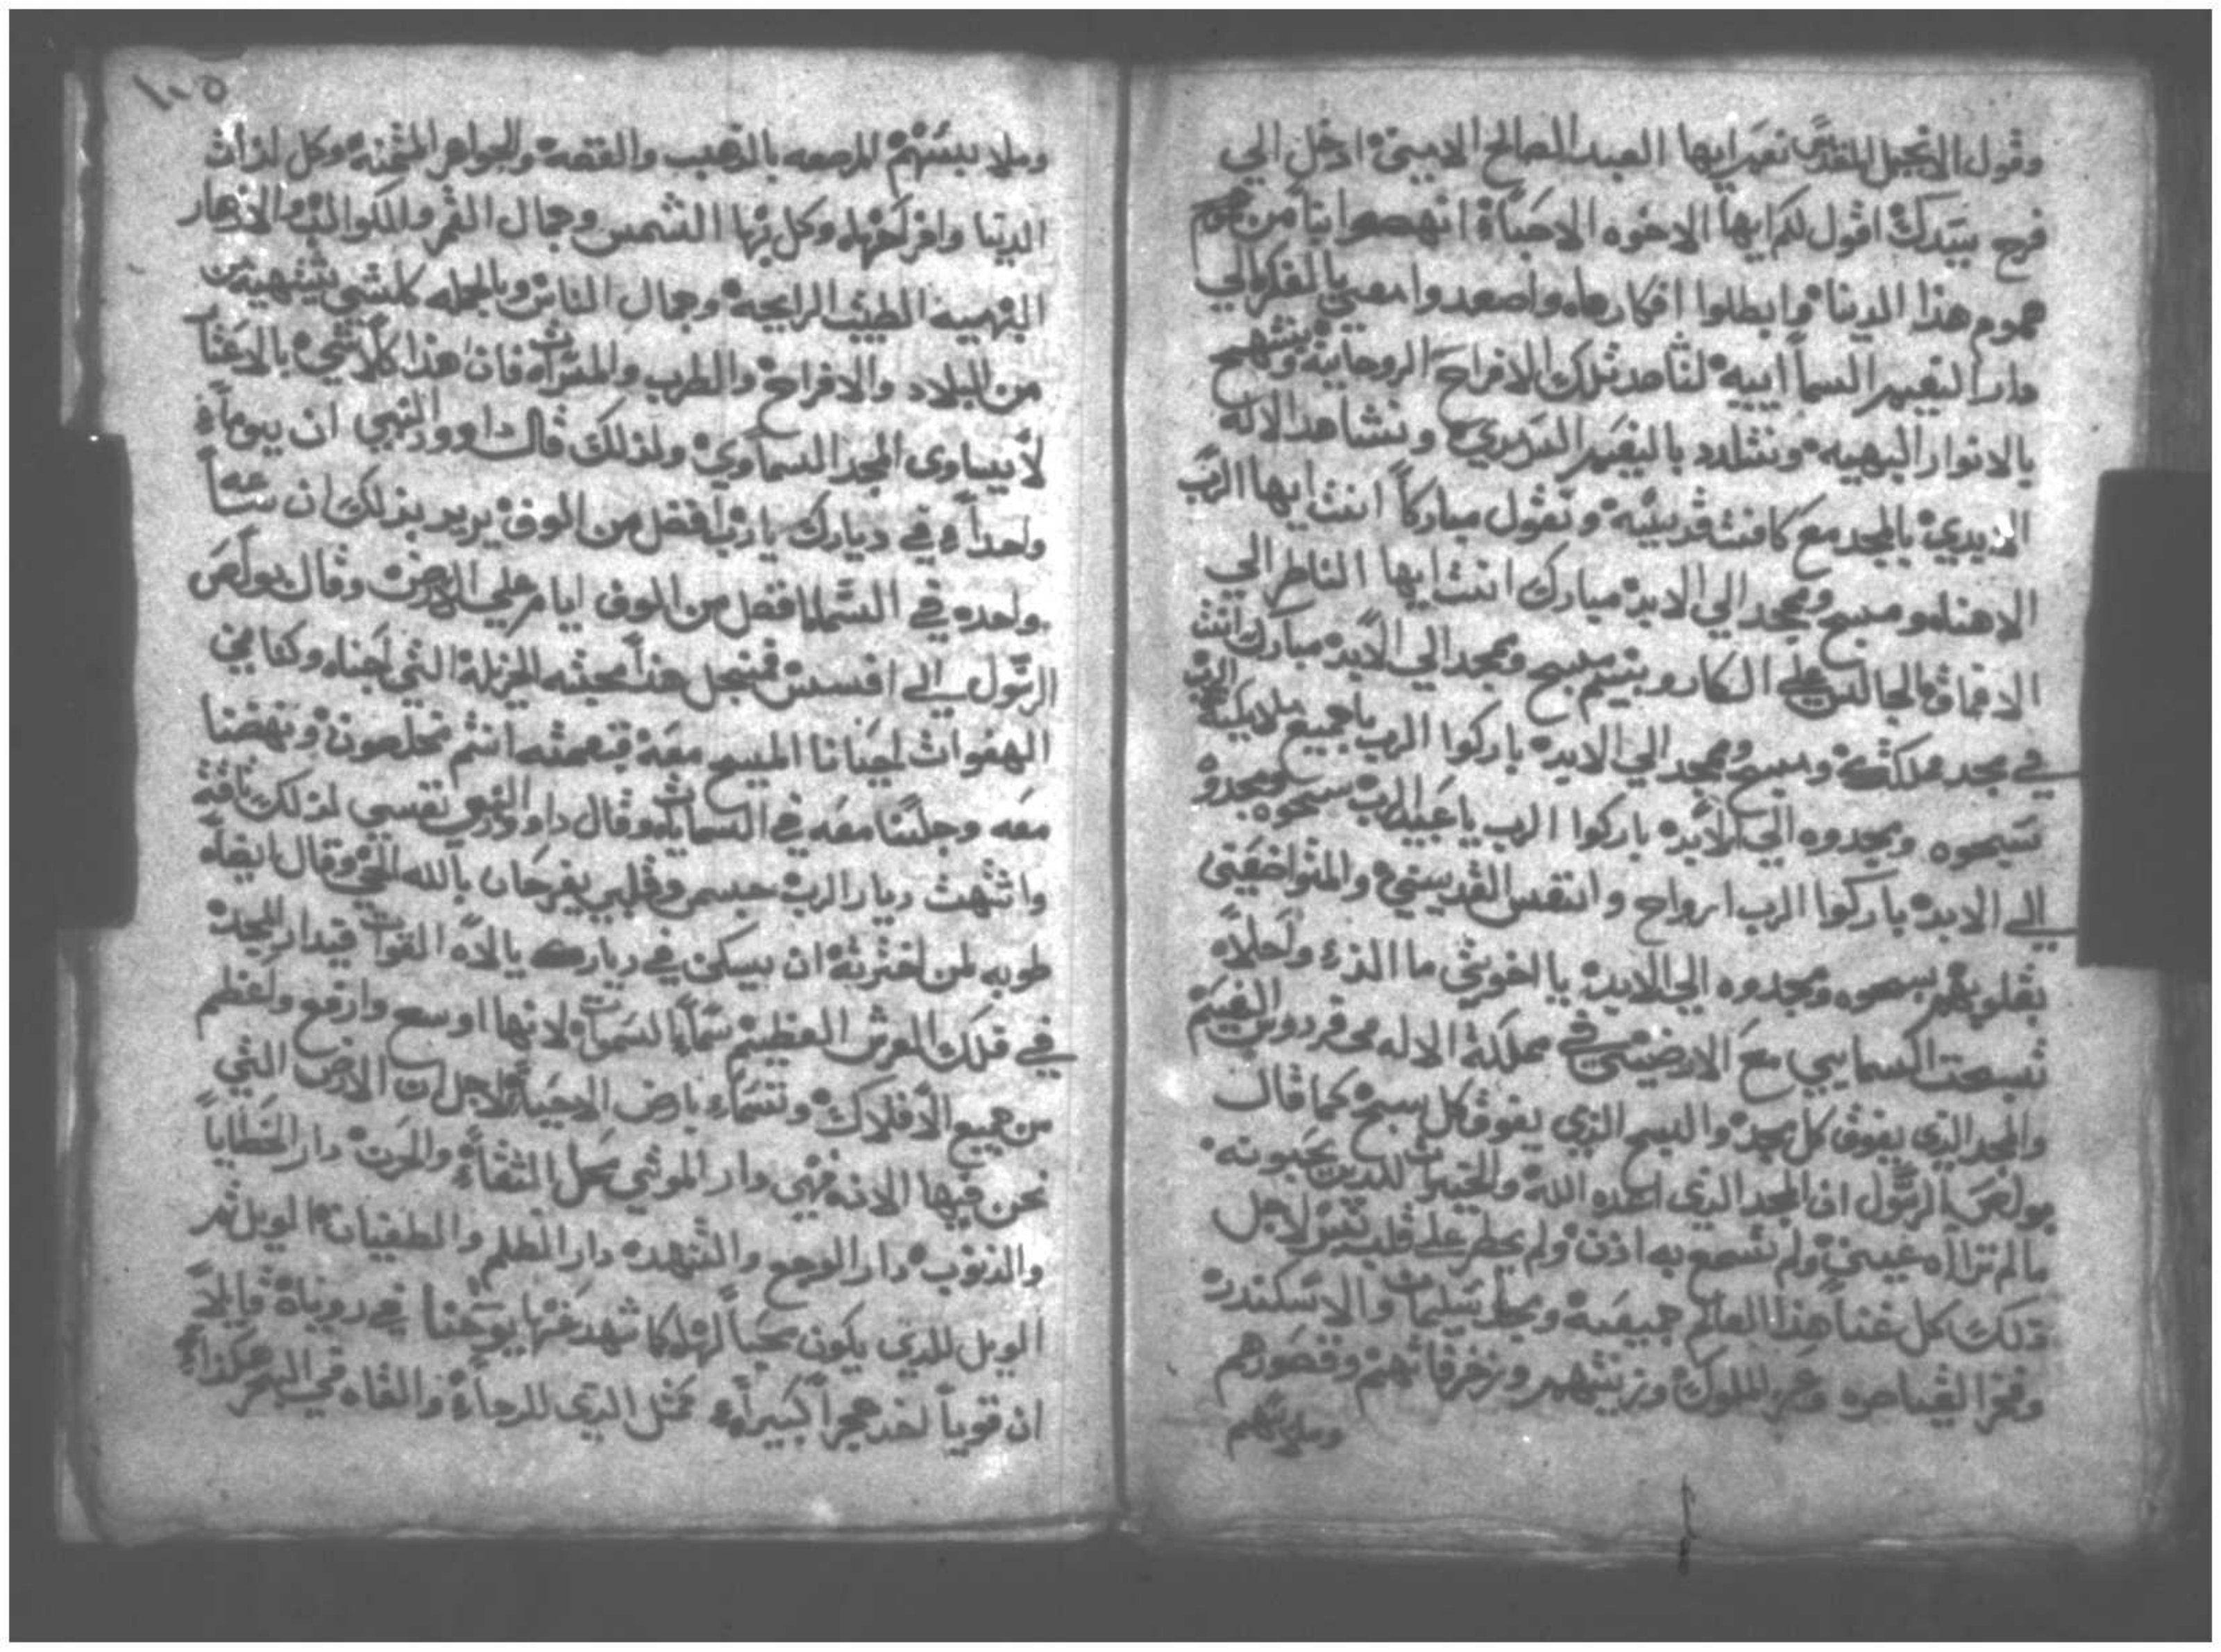 وقول الانجيل المقدس نعم ايها العبد الصالح الامين ادخل الي
فرح سيدك اقول لكم ايها الاخوه الاحباة انهضوا بنا من هموم
هموم هذا الدنيا وابطلوا افكارها واصعدوا معي بالفكر الي
دار النعيم السماييه لنشاهد تلك الافراح الروحانية ونبتهج
بالانوار البهيه ونتلدد بالنعيم السرمدي ونشاهد الالة
الازيدي بالمجد مع كافت قديسيه ونقول مباركاً انت ايها الرب
الاهنا ومسبح وممجد الي الابد مبارك انت ايها الناظر الي
الاعماق الجالس علي الكاروبيم مسبح وممجد الي الابد مبارك انت
في مجد مملكتك ومسبح وممجد الي الابد باركوا الرب ياجميع ملايكة الرب
سبحوه ومجدوه الي الابد باركوا الرب ياعبيد الرب سبحوه ومجدوه
الي الابد باركوا الرب ارواح وانفس القديسين والمتواضعين
بقلوبهم سبحوه ومجدوه الي الابد يا اخوتي ما الذ واحلا
تسبحت السماييي مع الارضيين في مملكة الاله في فردوس النعيم
والمجد الذي يفوق كل مجد والسبح الذي يفوق كل سبح كما قال
بولص الرسول ان المجد الذي اعده الله والخيرات للدين يحبونه
مالم تراه عين ولم تسمع به اذن ولم يخطر علي قلب بشر لاجل
ذلك كل غنا هذا العالم جيفة ومجد سليمان والاسكندر
وفخر القياصره وعز الملوك وزينتهم وزخرفاتهم وقصورهم
وملابسهم
١٠٥
وملابسهم المرصعه بالذهب والفضه والجواهر المثمنه وكل لذات
الدنيا وافراحها وكل بها الشمس وجمال القمر والكواكب والازهار
البهيه الطيب الرايحة وجمال الناس وبالجمله كلشي يشتهيه من
من البلاد والافراح والطرب والمسرات فان هذا كلاشي بالاعتبار
لا يساوي المجد السماوي ولذلك قال داوود النبي ان يوماً
واحداً في ديارك يارب افضل من الوف يريد بذلك ان ساعه
واحده في السما افضل من الوف ايام علي الارض وقال بولص
الرسول الي افسس فمنجل هذا محبته الجزيلة التي احبنا وكنا ميتي
الهفوات احيانا المسيح معه فبنعمته انتم مخلصون ونهضنا
معه وجلسنا معه في السمايات وقال داوود النبي نفسي لذلك تاقة
واشتهت ديار الرب جسمي وقلبي يفرحان بالله الحي وقال ايضاً
طوبه لمن اخترته ان يسكن في ديارك يالاه القوات فيدار المجد
في فلك العرش العظيم سما السموات لانها اوسع وارفع واعظم
من جميع الافلاك وتسما بارض الاحيا لاجل ان الارض التي
نحن فيها الان فهي دار الموتي محل الشقا والحزن دار الخطايا
والذنوب دار الوجع والتنهد دار الظلم والطغيان الويل ثم
الويل للذي يكون محباً لها كما شهد عنها يوحنا في روياة قايلاً
ان قوياً اخد حجراً كبيراً مثل الذي للرحاة والقاه في البحر هكذا